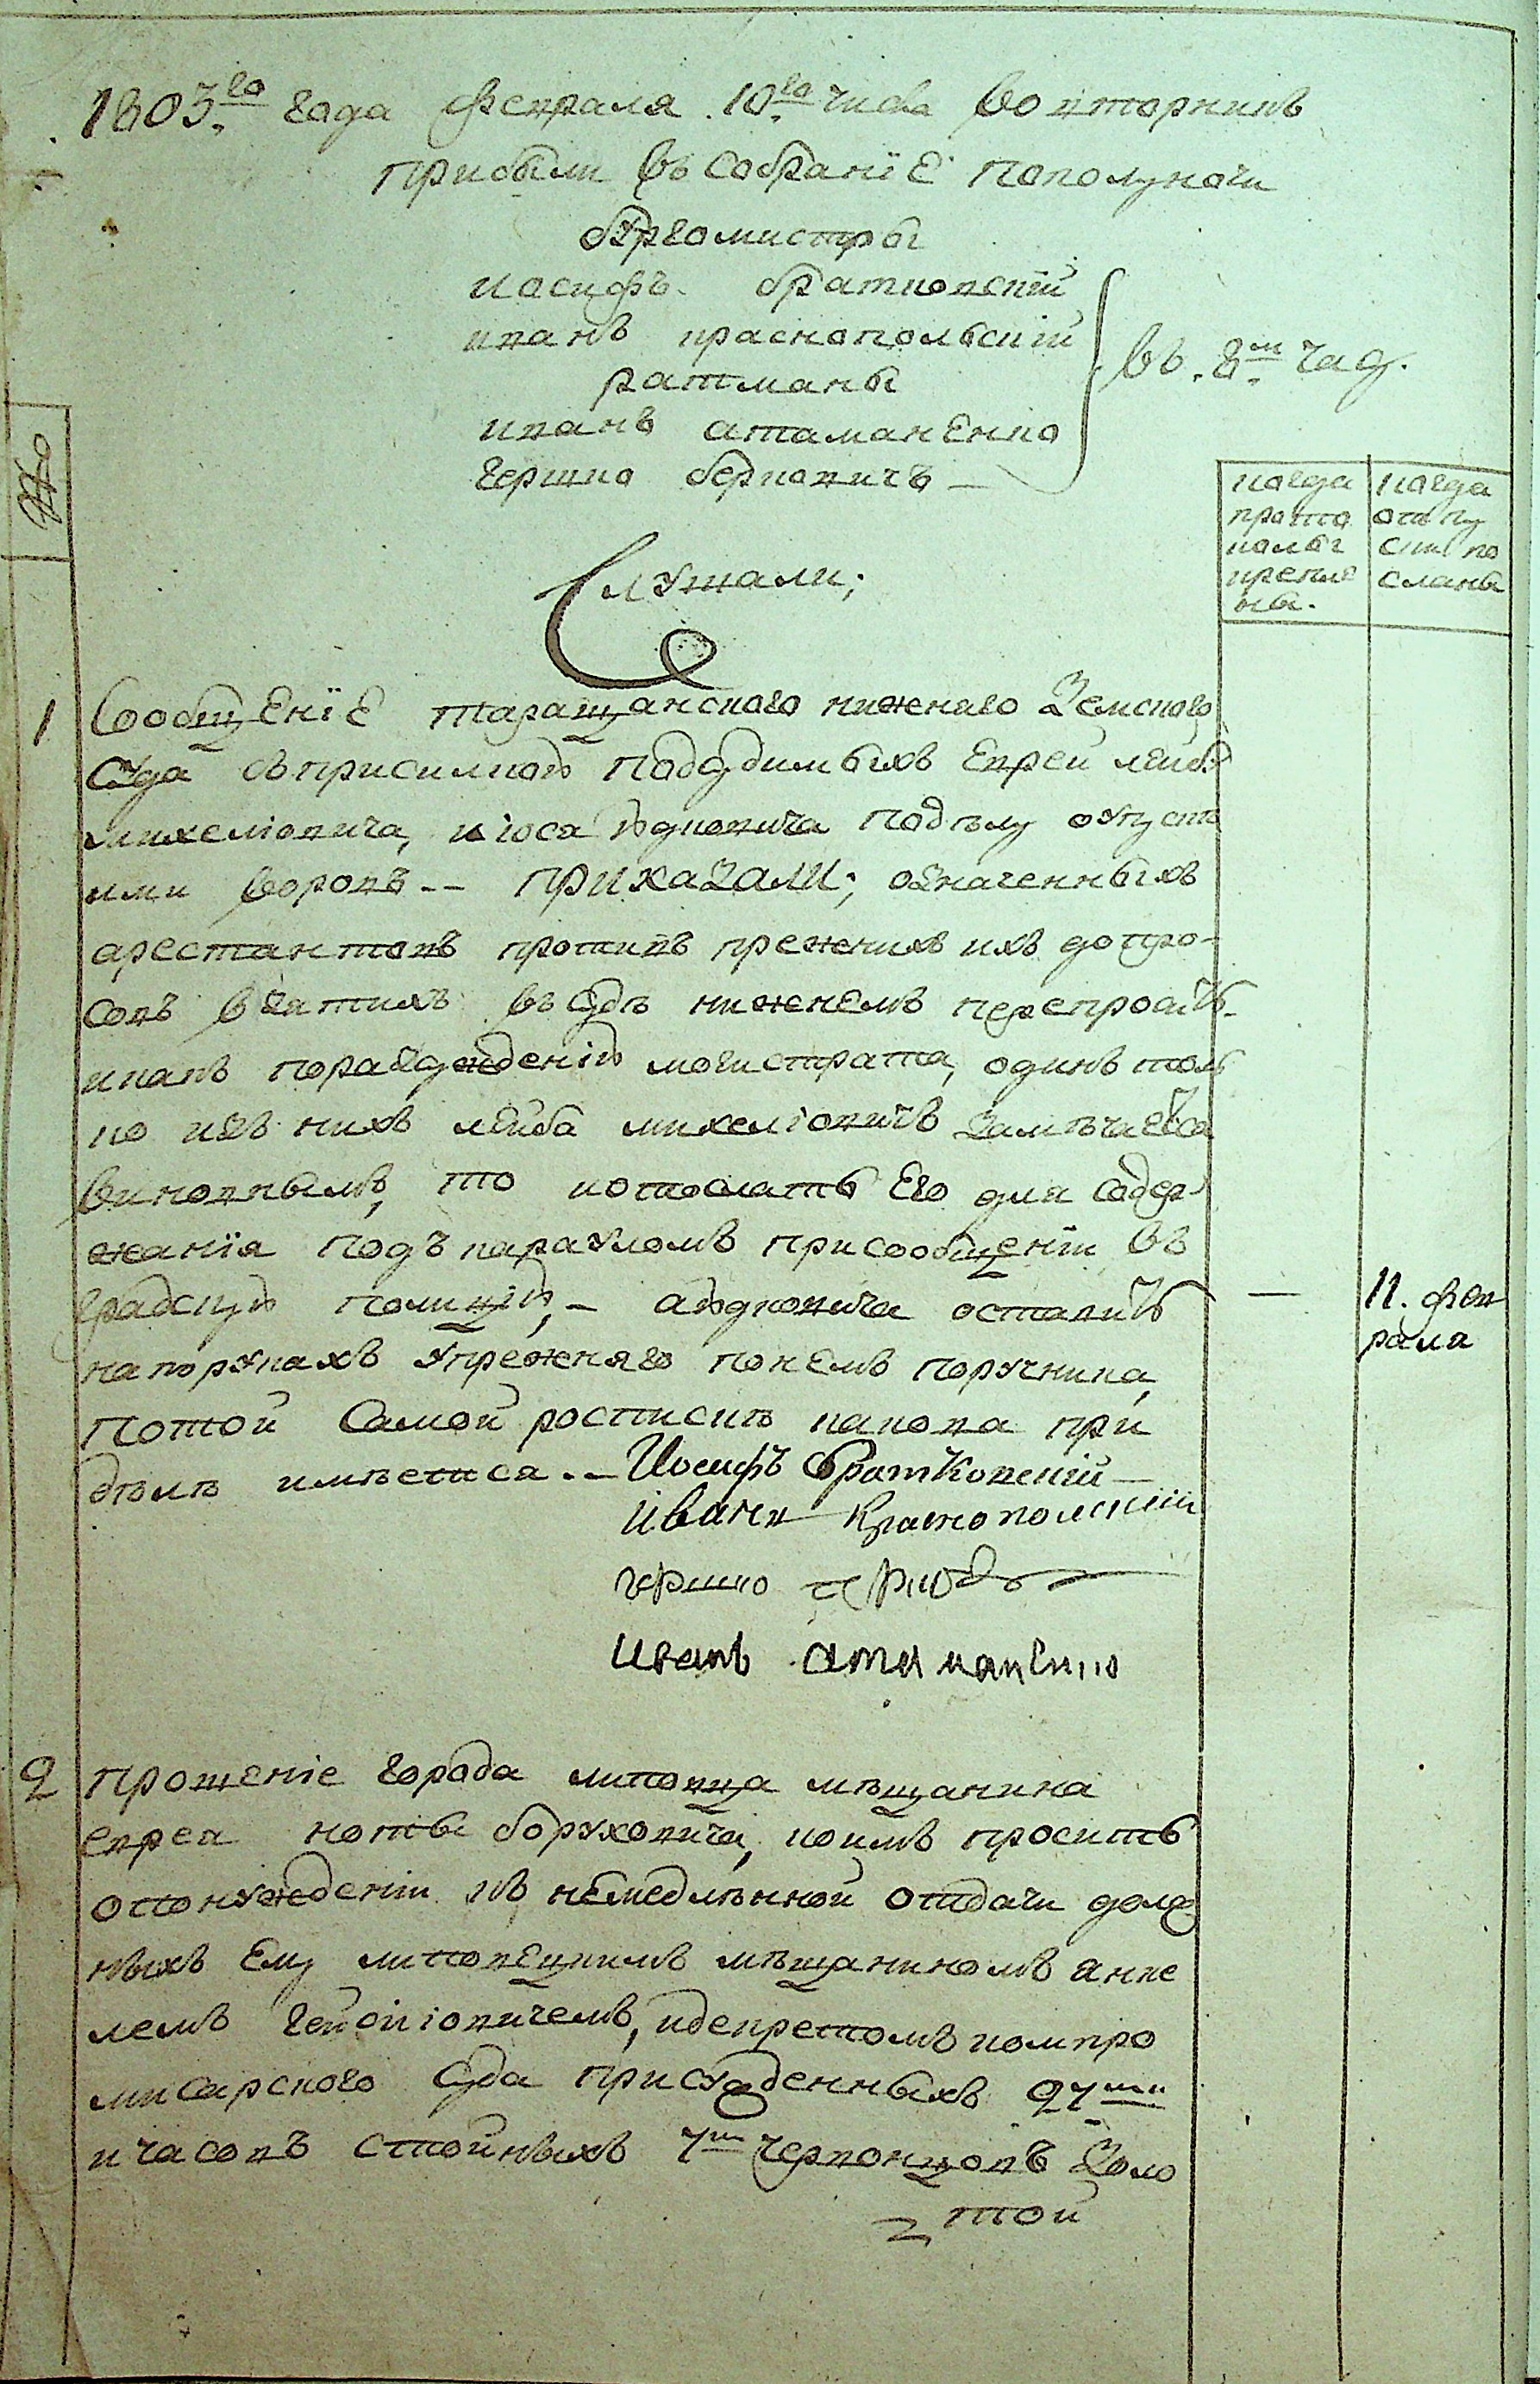 1803.го года февраля .10.го числа во вторникъ
прибыли въ собранїе пополуночи
бургомистры
иосифъ. братковскїй
иванъ краснопольскїй
ратманы
иванъ атаманенко
гершко берковичъ —
въ .8.м часу.
№
когда
прото
колы
крепле
ны.
когда
отпу
ски по
сланы
Слушали;
1 Сообщенїе таращанского нижнего Земского
суда съприсилкою подсудимыхъ евреи лейбы
михеліовича, иіося юдковича подѣлу
ими коровъ -- приказали; означенныхъ
арестантовъ противъ прежнихъ ихъ допро-
совъ взятихъ въсудѣ нижнемъ перепросить
икакъ поразсужденію могистрата, одинъ толь
ко изъ нихъ лейба михеліовичъ замѣчается
виновнымъ, то иотослать его для содер-
жанїя подъ карауломъ присообщенїи въ
градскую полицїю, – аюдковича оставить
напорукахъ упрежняго понемъ поручника,
потой самой росписки какова при
дѣлѣ имѣется.. – Иосифъ Братковскїй
Иванъ Краснополскїй
гершко
Иванъ Атаманенко
— 11. фев
раля
2 прошеніе города липовца мѣщанина
еврея ноты боруховича, коимъ проситъ
опонужденїи къ немедлѣнной отдачи долж
ныхъ ему липовецкимъ мѣщаниномъ янке
лемъ идекретомъ компро
мисарского суда присужденныхъ 27ми
ичасовъ стойныхъ 7м червонцовъ золо
той